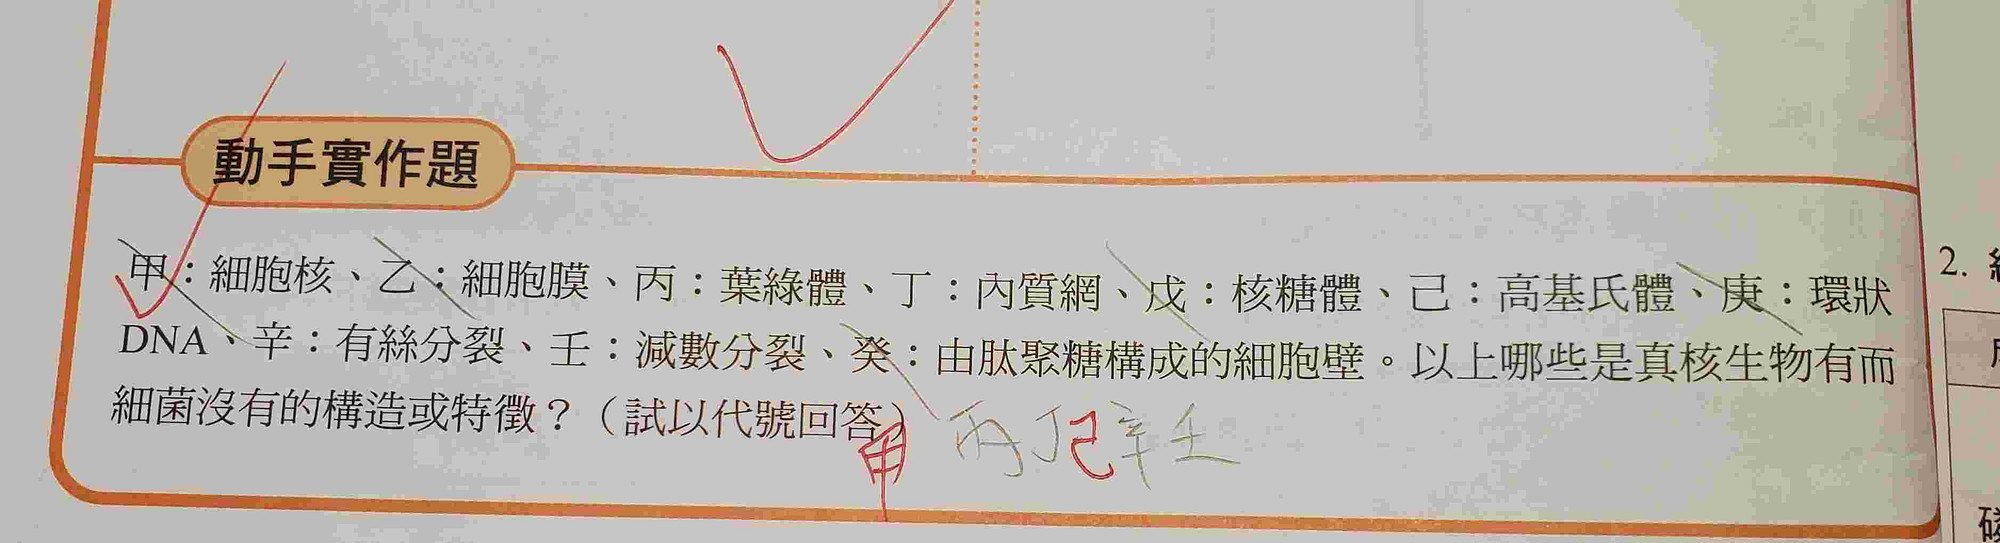 動手實作題
甲：細胞核、乙：細胞膜、丙：葉綠體、丁：內質網、戊：核糖體、己：高基氏體、庚：環狀
DNA、辛：有絲分裂、壬：減數分裂、癸：由肽聚糖構成的細胞壁。以上哪些是真核生物有而
細菌沒有的構造或特徵？（試以代號回答）
甲 丙丁己辛壬
2.